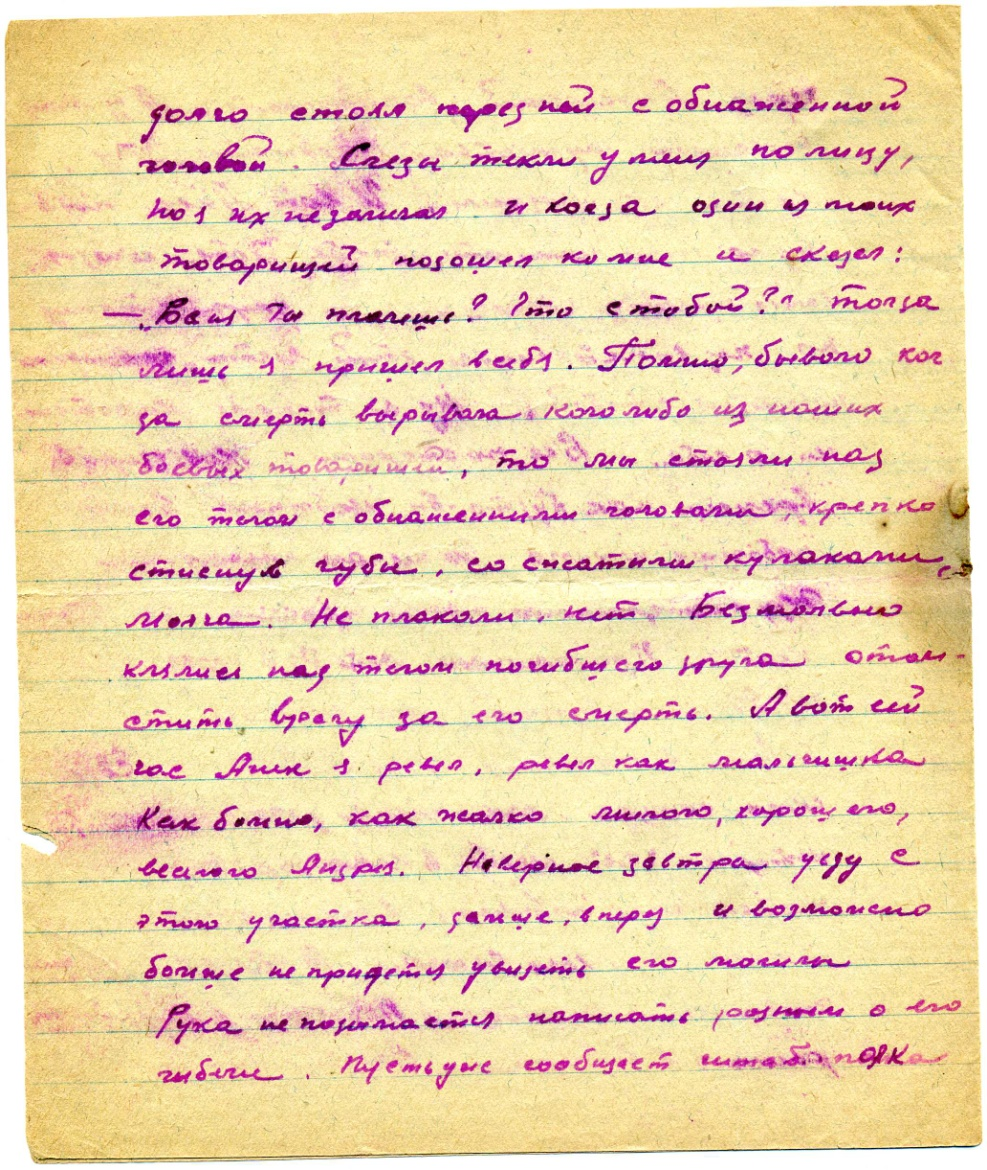 долго стоял перед ней с обнаженной
головой. Слезы текли у меня по лицу,
но я их не замечал и когда один из моих
товарищей подошел ко мне и сказал:
— „Ваня Ты плачешь? Что с тобой?" Тогда
лишь я пришел в себя. Помню, бывало ког
да смерть вырывала кого либо из наших
боевых товарищей, то мы стояли над
его телом с обнаженными головами, крепко
стиснув губы, со сжатыми кулаками,
молча. Не плакали, нет. Безмолвно
клялись над телом погибшего друга отом-
стить врагу за его смерть. А вот сей
час я ревел, ревел как мальчишка
Как больно, как жалко милого, хорошего,
веселого Андрея. Наверное завтра уеду с
этого участка, дальше, вперед и возможно
больше не придется увидеть его могилы
Рука не подымается написать родным о его
гибели. Пусть уже сообщает штаб полка